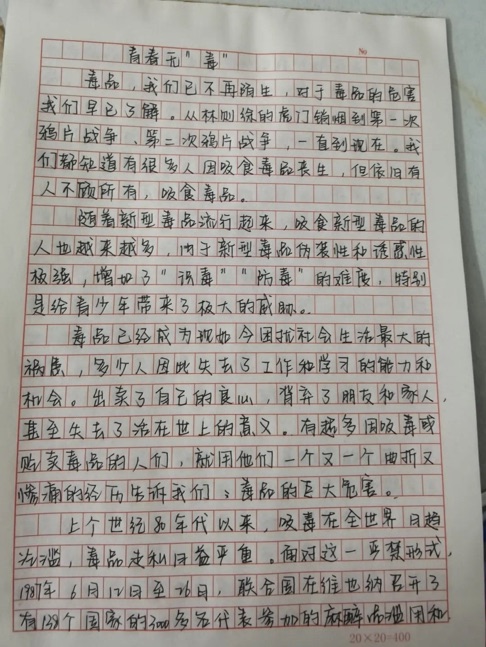 青春无"毒"
№
毒品，我们已不再陌生，对于毒品的危害
我们早已了解。从林则徐的虎门销烟到第一次
鸦片战争、第二次鸦片战争，一直到现在。我
们都知道有很多人因吸食毒品丧生，但依旧有
人不顾所有，吸食毒品。
随着新型毒品流行起来，吸食新型毒品的
人也越来越多，由于新型毒品伪装性和诱惑性
极强，增加了"识毒""防毒"的难度，特别
是给青少年带来了极大的威胁。
毒品已经成为现如今困扰社会生活最大的
祸患，多少人因此失去了工作和学习的能力和
机会。出卖了自己的良心，背弃了朋友和家人，
甚至失去了活在世上的意义。有越多因吸毒或
贩卖毒品的人们，就用他们一个又一个曲折又
惨痛的经历告诉我们：毒品的巨大危害。
上个世纪80年代以来，吸毒在全世界日趋
泛滥，毒品走私日益严重。面对这一严禁形式，
1987年6月12日至26日，联合国在维也纳召开了
有138个国家的3000多名代表参加的麻醉品滥用和
20×20=400